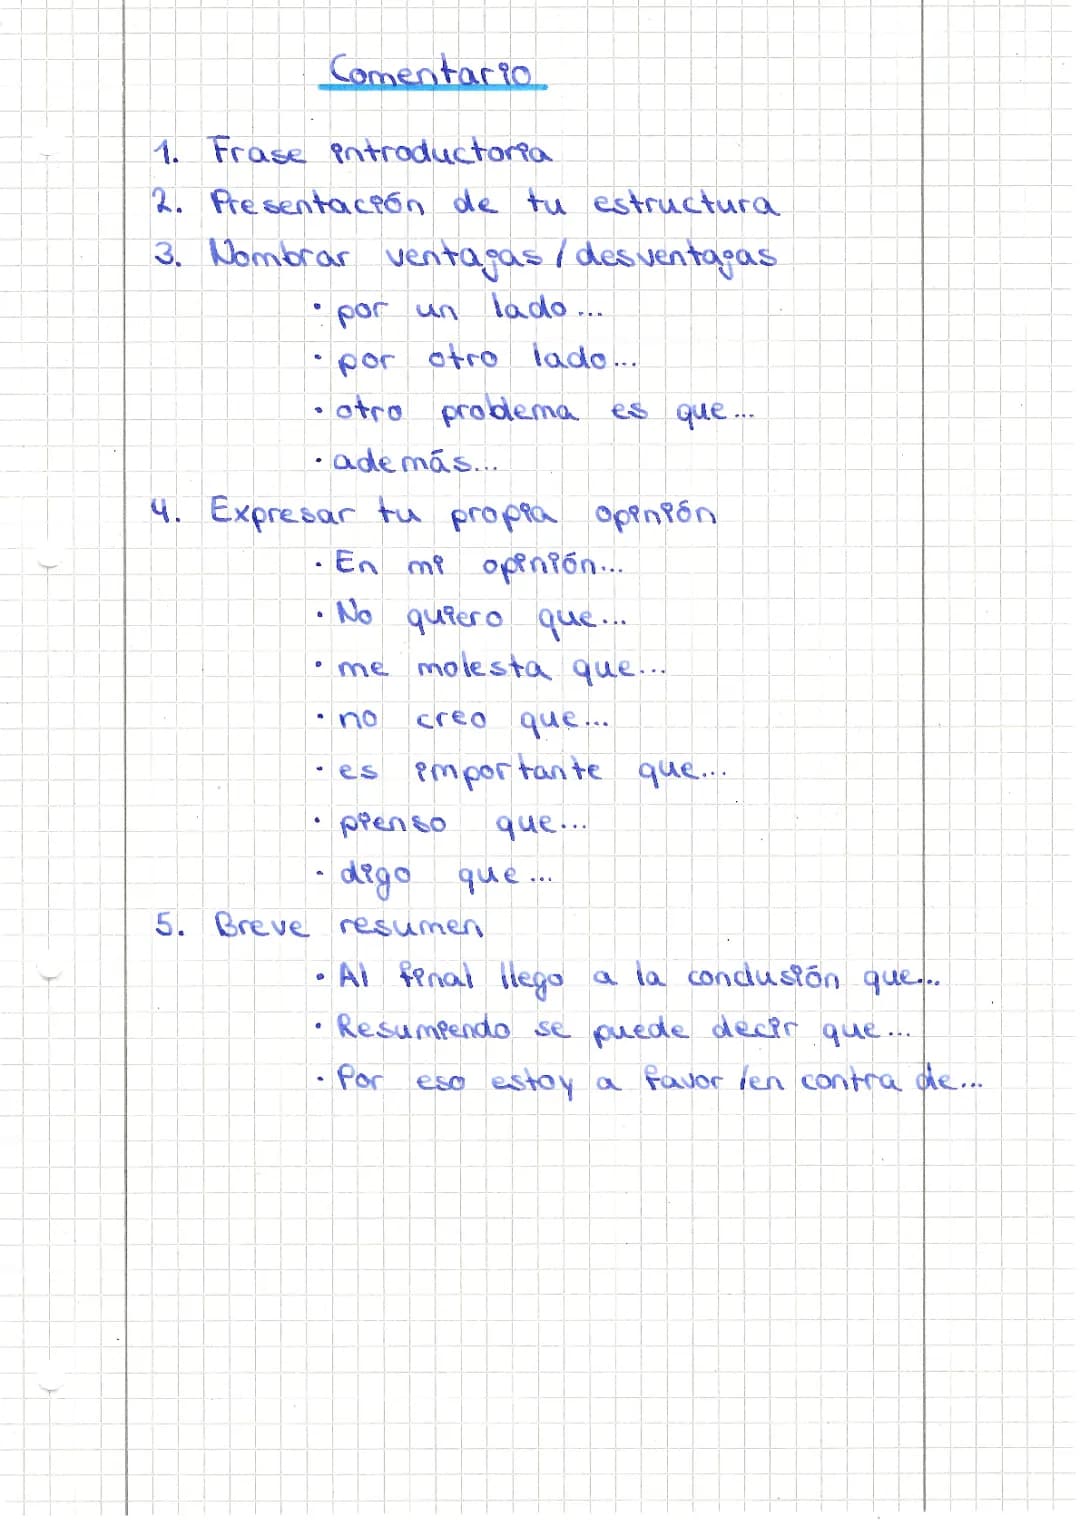 Comentario
1. Frase introductoria
2. Presentación de tu estructura
3. Nombrar ventajas / desventajas
• por un lado...
• por otro lado...
• otro problema es que...
• además...
4. Expresar tu propia opinión
• En mi opinión...
• No quiero que...
• me molesta que...
• no creo que...
• es importante que...
• pienso que...
• digo que...
5. Breve resumen
• Al final llego a la conclusión que...
• Resumiendo se puede decir que...
• Por eso estoy a favor /en contra de...